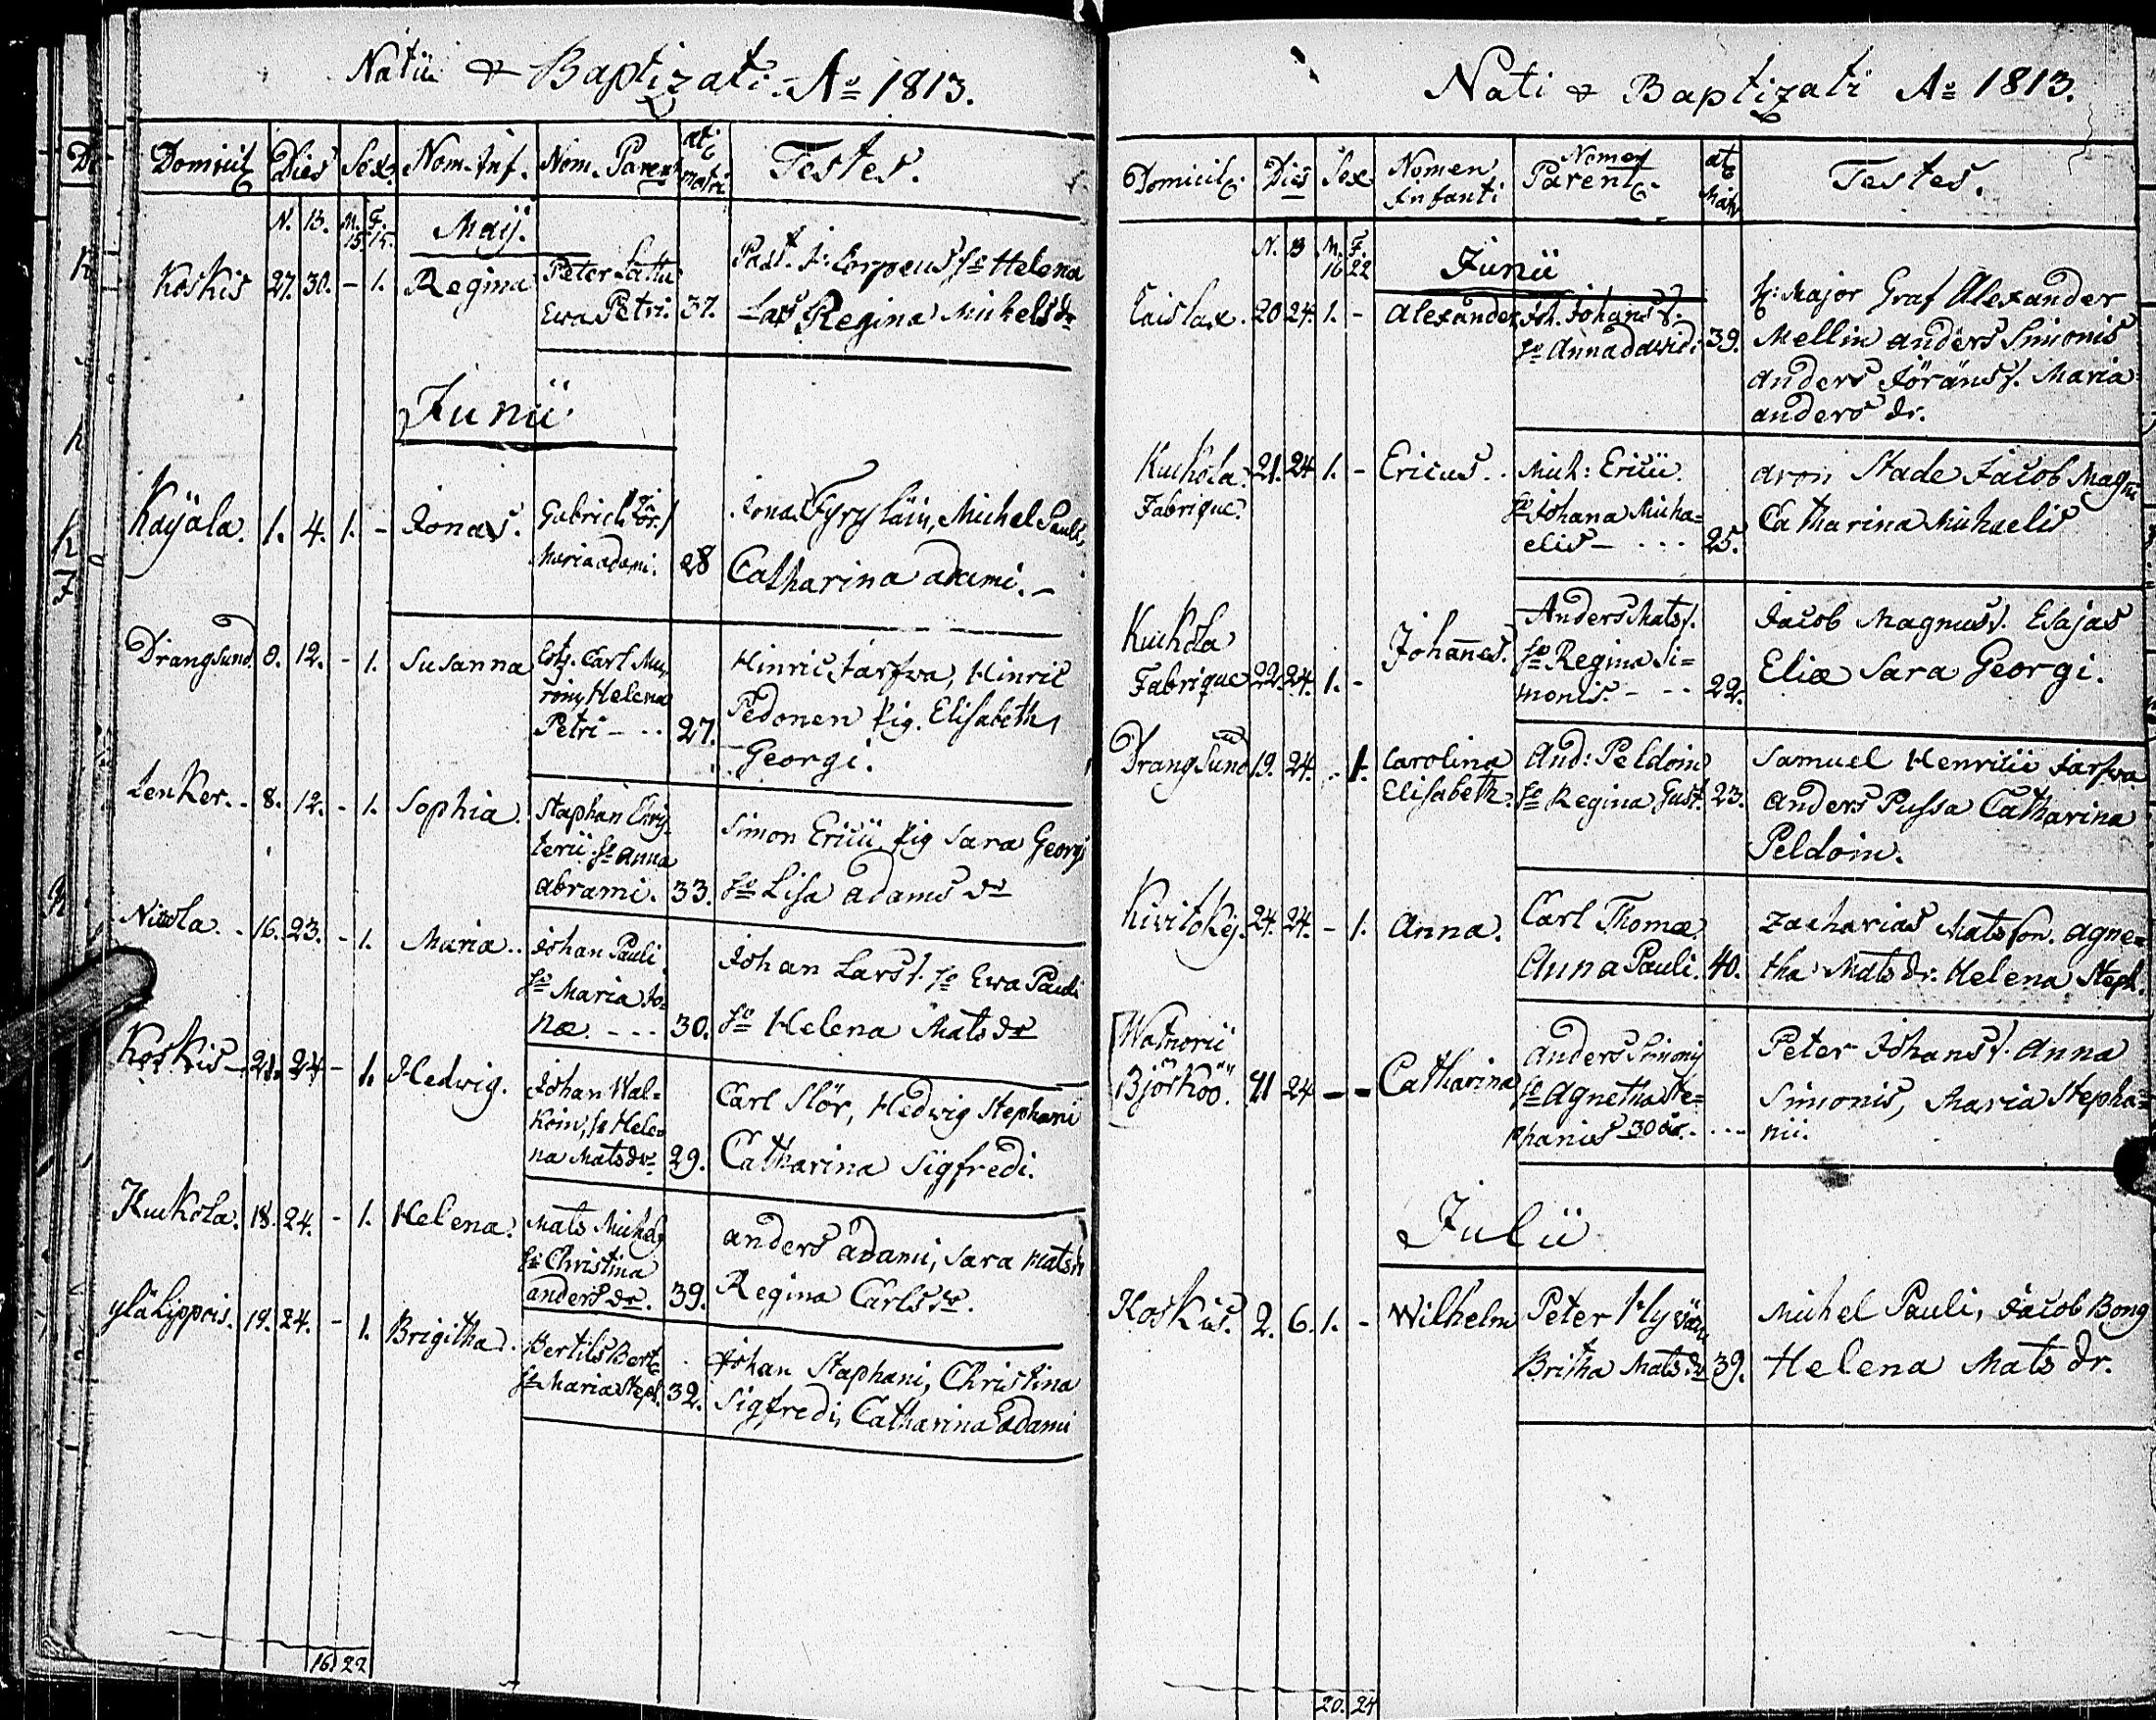 Natii & Baptizati. Ao 1813.
Domicil Dies Sex. Nom. Inf. Nom. Parent æt. matri Testes.
N. B. M. F.
15 15.
Maij.
Koskis 27. 30. - 1. Regina Peter Lattu
Ewa Petri. 37.
Past. J: Corpeus Ho Helena
Lars Regina Michelsdr
Junii
Kaijala. 1. 4. 1. - Jonas. Gabriel
Maria adami. 28
Jonas Fyryläin, Michel Pauli,
Catharina adami. -
Drangsund. 8. 12. - 1. Susanna Carl Mu-
roin, Helena
Petri - . . 27.
Hinric Tarfwa, Hinric
Pedonen Pig. Elisabeth
Georgi.
Lenker. . 8. 12. - 1. Sophia.
Ho anna
abrami. 33.
Simon Ericii Pig Sara Georgi
Ho Lisa adams dr
Nissola. . 16. 23. - 1. Maria . . Johan Pauli
Ho Maria Jo-
næ. - - - 30.
Johan Lars s. Ho Ewa Pauli
Ho Helena Mats dr
Koskis - 21. 24 - 1. Hedwig. Johan Wal-
koin, Ho Hele-
na Matsdr 29.
Carl Slör, Hedvig Stephani
Catharina Sigfredi.
Kuckola. 18. 24. - 1. Helena. Mats Michels
Ho Christina
anders dr. 39.
anders adami, Sara Matsdr
Regina Carlsdr.
yläLippois. 19. 24. - 1. Brigitha. Bertils Bert.
Ho Maria Steph. 32.
Johan Staphani, Christina
Sigfredi, Catharina Adami
16. 22
Nati & Baptizati Ao 1813.
Domicil. Dies Sex Nomen Infanti Nomen Parent. æt. Matr Testes.
N. B M. F.
16 22
Junii
Eaislax. 20 24. 1. - Alexander Joh. Johans s.
Ho Anna davidi 39.
H: Major Graf Alexander
Mellin anders Simonis
anders Jöräns s. Maria
anders dr.
Kuckola. 21. 24 1. - Ericus. . Mich: Ericii
Fabrique.
Ho Johana Micha=
elis - . . . 25.
aron Stade Jacob Magni
Catharina Michaelis
Kuckola
Fabrique 22. 24. 1. - Johannes. Anders Mats s.
Ho Regina Si=
monis. - - - 22.
Jacob Magnus s. Esajas
Eliæ Sara Georgi.
Drangsund 19. 24. - 1. Carolina
Elisabeth. And: Peldoin
Ho Regina Gust. 23.
Samuel Henricii Tarfwa
anders Pussa Catharina
Peldoin.
Kivitokej. 24. 24. - 1. Anna. Carl Thomæ.
Anna Pauli. 40.
Zacharias Matsson. agne=
tha Matsdr. Helena Steph.
Watnorii
Björköö. 21 24 - - Catharina Anders Simonis
Ho Agnetha Ste=
phanis 30 år. . . . .
Peter Johans s. Anna
Simonis, Maria Stepha=
nii.
Julii
Koskis. 2. 6. 1. - Wilhelm Peter
Britha Matsdr 39.
Michel Pauli, Jacob Bong
Helena Mats dr.
20. 24